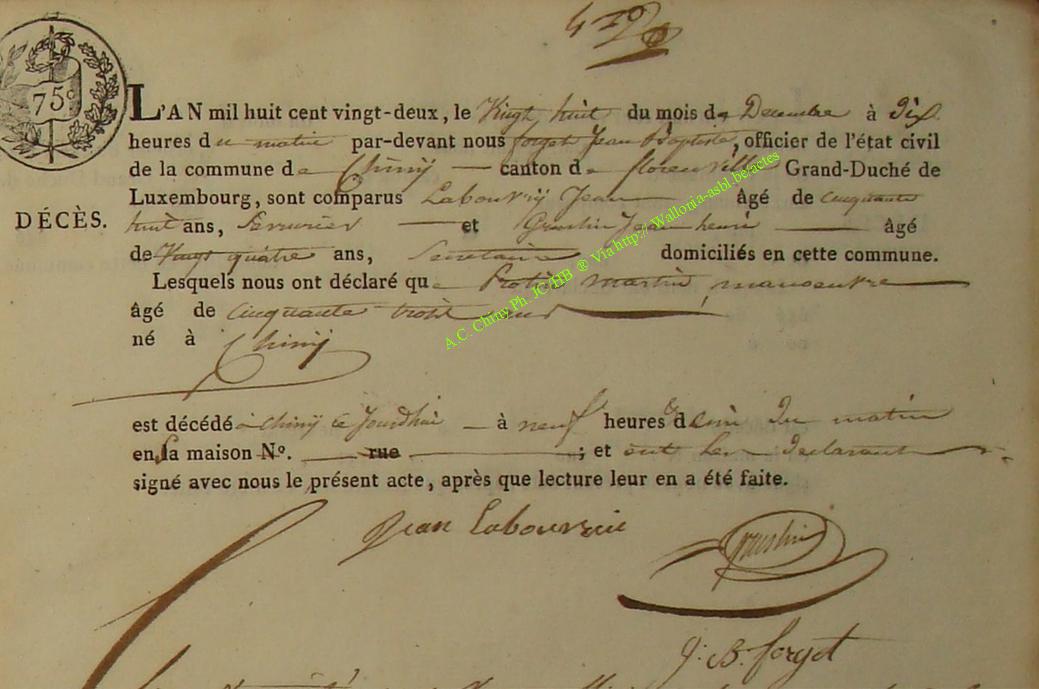 75c
L'AN mil huit cent vingt-deux, le Vingt huit du mois de Decembre à Dix
heures du matin par-devant nous forget Jean Baptiste, officier de l'état civil
de la commune de Chinÿ canton de florenville Grand-Duché de
Luxembourg, sont comparus Labouvrÿ Jean âgé de cinquante
DÉCÈS.
huit ans, Serrurier et Jean henri âgé
de Vingt quatre ans, Secretaire domiciliés en cette commune.
Lesquels nous ont déclaré que martin, manoeuvre
âgé de cinquante trois ans
né à Chinÿ
est décédé à chinÿ ce Jourdhui à neuf heures & demi du matin
en sa maison No. rue ; et ont les declarants
signé avec nous le présent acte, après que lecture leur en a été faite.
Jean
J. B. forget
A.C. Chiny Ph. JC/HB ® Via http://Wallonia-asbl.be/actes